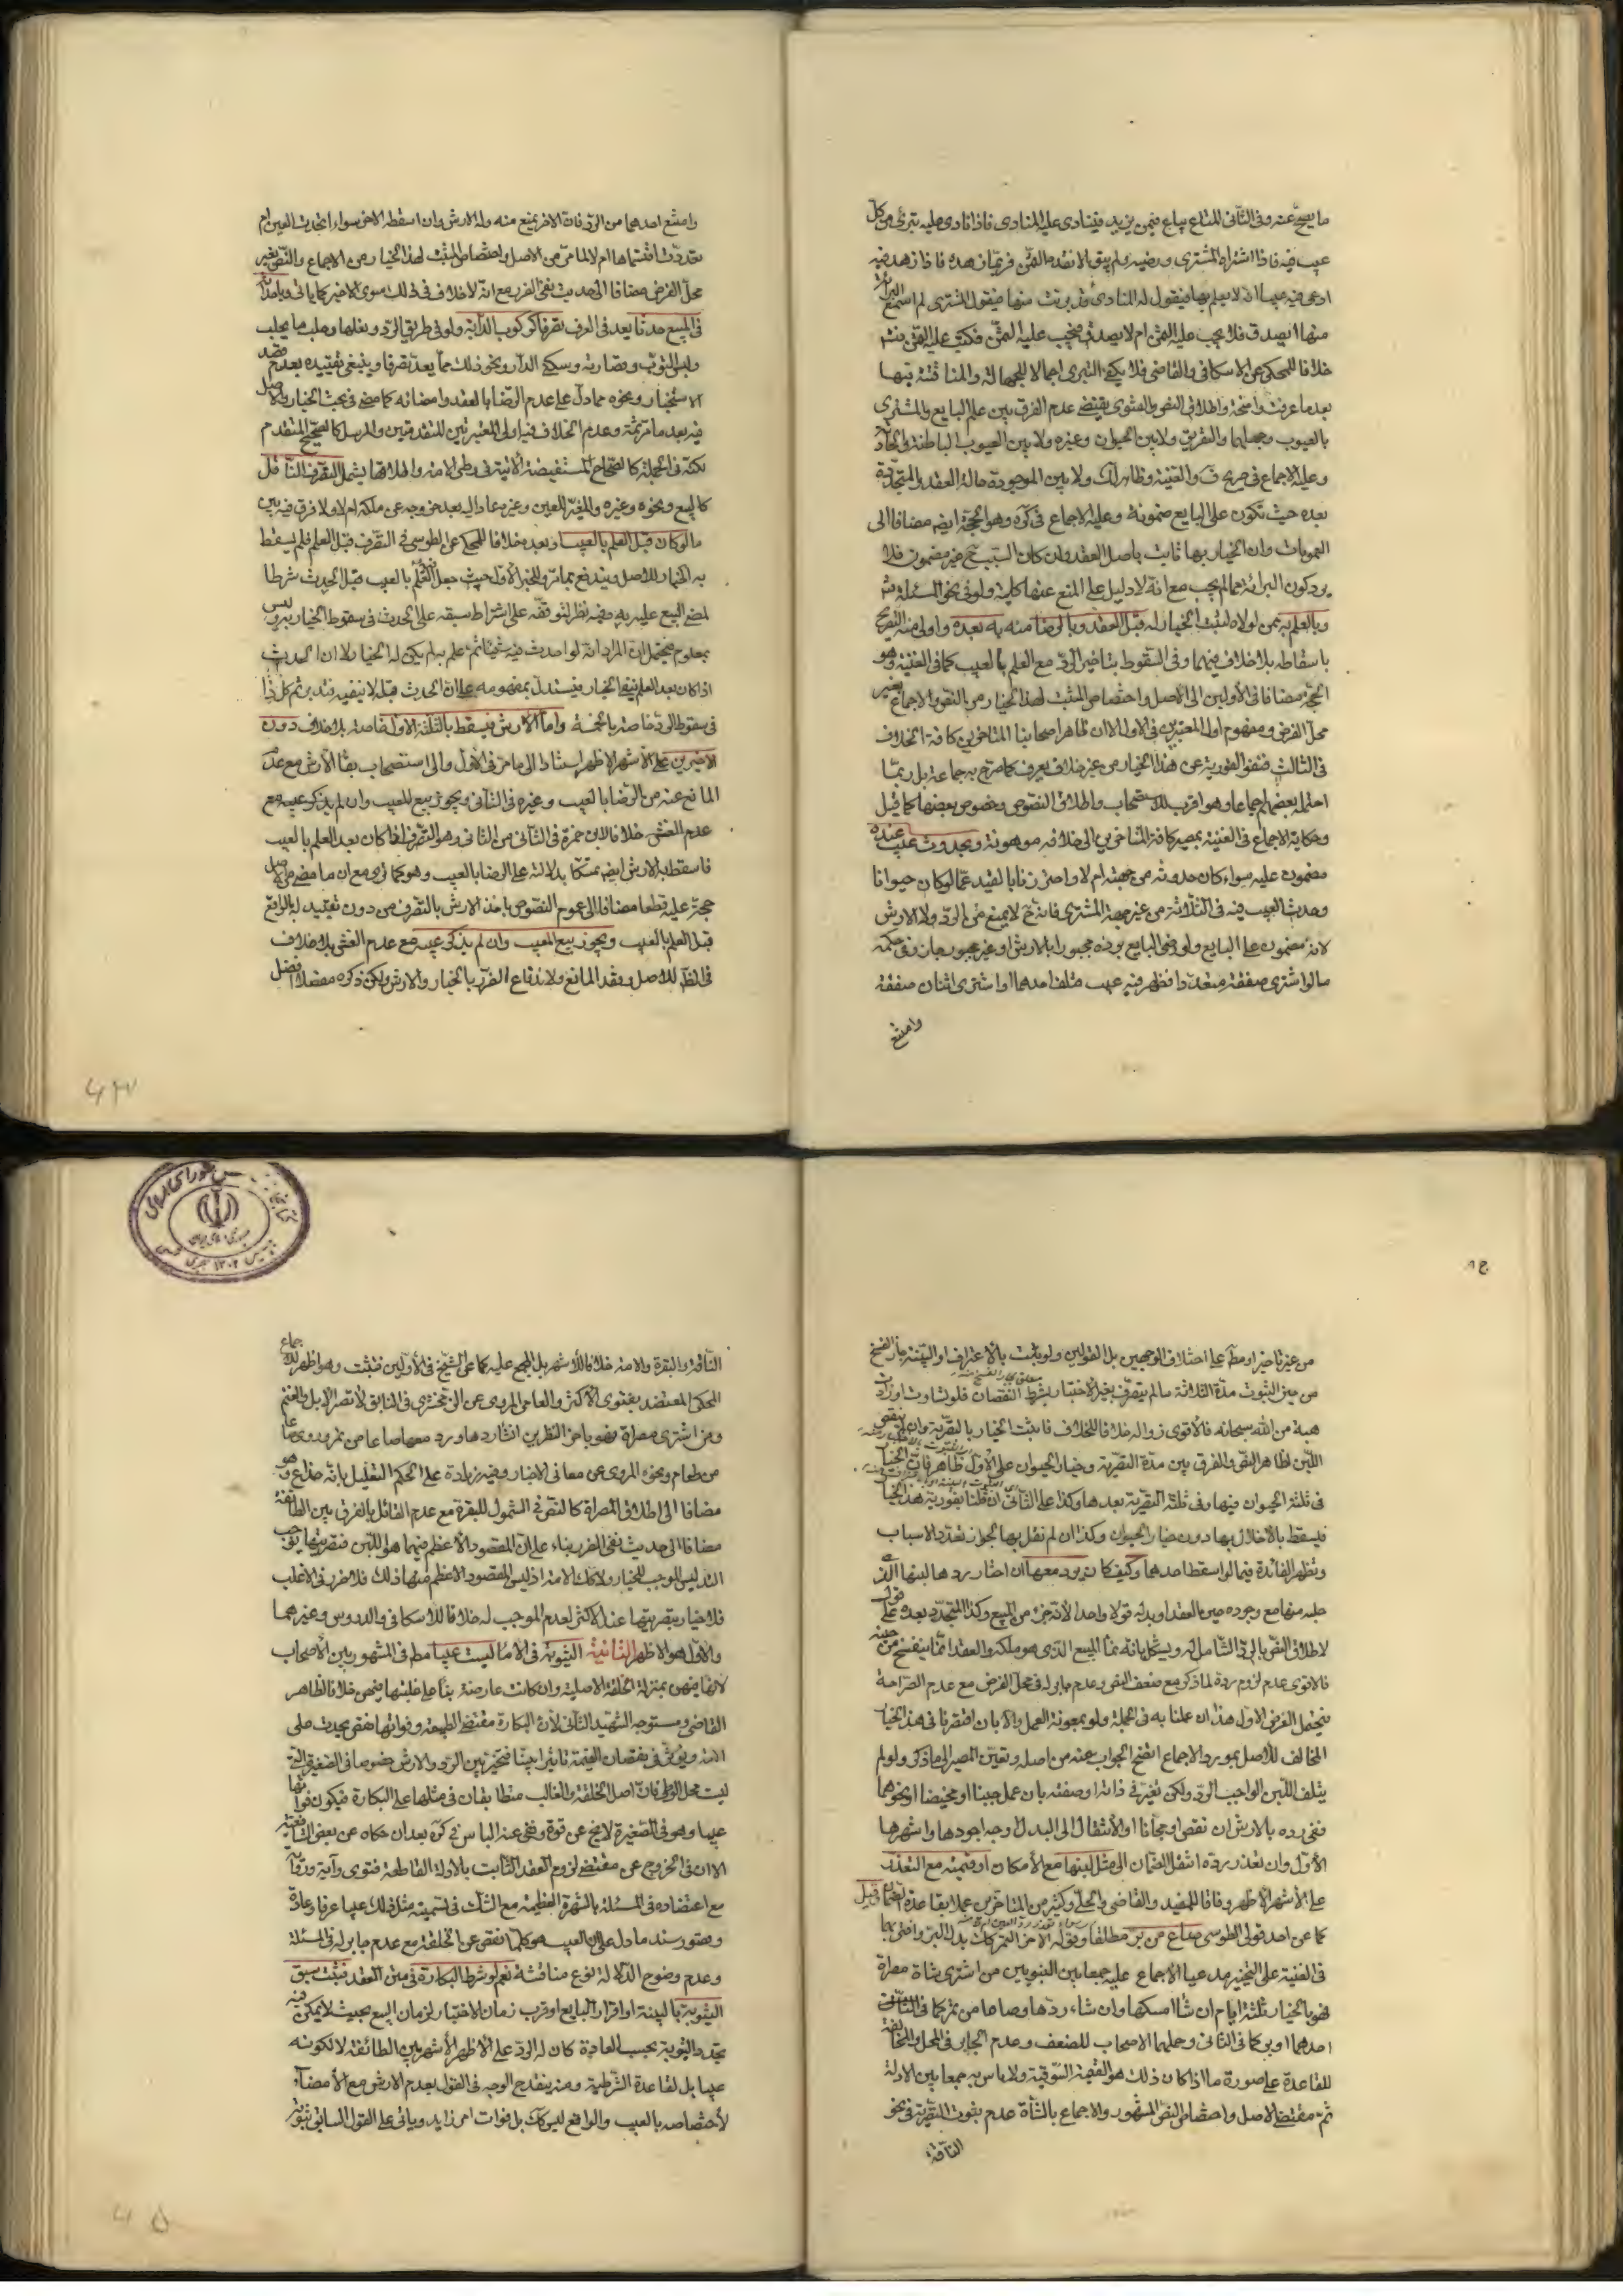 ما يصح عنه وفى الثانى المتاع يباع فيمن يزيد فينادى عليه المنادى فاذا نادى عليه تبرئ من كل
عيب فيه فاذا اشتراه المشترى ورضيه ولم يبق الا نقده الثمن فربما زهد فيه فاذا زهد فيه
ادعى فيه عيوبا انه لا يعلم بها فيقول له المنادى قد برئت منها فيقول المشترى لم اسمع البراءة
منها ايصدق فلا يجب عليه الثمن ام لا يصدق فيجب عليه الثمن فكتب عليه الثمن ثم
خلافا للمحكى عن الاسكافى والقاضى فلا يكفى التبرى اجمالا للجهالة والمناقشة فيها
بعد ما عرفت واضحة واطلاق النص والفتوى يقتضى عدم الفرق بين علم البايع والمشترى
بالعيوب وجهلهما والتفريق ولا بين الحيوان وغيره ولا بين العيوب الباطنة وغيرها
وعليه الاجماع فى صريح ف والغنية وظاهر لك ولا بين الموجودة حالة العقد والمتجددة
بعده حيث تكون على البايع مضمونة وعليه الاجماع فى كره وهو الحجة ايضا مضافا الى
العمومات وان الخيار بها ثابت باصل العقد وان كان السبب ح غير مضمون فلا
يرد كون البرائة مما لم يجب مع انه لا دليل على المنع عنها كلية ولو فى نحو المسئلة ثم
وبالعلم به ممن لولاه لثبت الخيار له قبل العقد وبالرضا منه به بعده واولى منه التصريح
باسقاطه بلا خلاف فيهما وفى السقوط بتاخير الرد مع العلم بالعيب كما فى الغنية وهو
الحجة مضافا فى الاولين الى الاصل واختصاص المثبت لهذا الخيار من النص والاجماع بغير
محل الفرض ومفهوم اول المعتبرين فى الاول الا ان ظاهر اصحابنا المتاخرين كافة الخلاف
فى الثالث فنفوا الفورية عن هذا الخيار من غير خلاف يعرف كما صرح به جماعة بل ربما
احتمله بعضهم اجماعا وهو اقرب للاستصحاب واطلاق النصوص وخصوص بعضها كما قيل
وحكاية الاجماع فى الغنية بمصير كافة المتاخرين الى خلافه موهونة وبحدوث عيب عنده
مضمون عليه سواء كان حدوثه من جهته ام لا واحترزنا بالقيد عما لو كان حيوانا
وحدث العيب فيه فى الثلاثة من غير جهة المشترى فانه ح لا يمنع من الرد ولا الارش
لانه مضمون على البايع ولو رضى البايع برده مجبورا بالارش او غير مجبور جاز وفى حكمه
ما لو اشترى صفقة متعددا فظهر فيه عيب فتلف احدهما او اشترى اثنان صفقة
وامتنع
وامتنع احدهما من الرد فان الاخر يمنع منه وله الارش وان اسقطه الاخر سواء اتحدت العين ام
تعددت اقتسماها ام لا لما مر من الاصل واختصاص المثبت لهذا الخيار من الاجماع والنص بغير
محل الفرض مضافا الى حديث نفى الضرر مع انه لا خلاف فى ذلك سوى الاخير كما ياتى وباحداثه
فى المبيع حدثا يعد فى العرف تصرفا كركوب الدابة ولو فى طريق الرد ونعلها وحلب ما يحلب
ولبس الثوب وقصارته وسكنى الدار ونحو ذلك مما يعد تصرفا وينبغى تقييده بعدم قصد
الاستخبار ونحوه مما دل على عدم الرضا بالعقد وامضائه كما مضى فى بحث الخيار والاصل
فيه بعد ما مر ثمة وعدم الخلاف فيه اولى المعتبرتين المتقدمتين والمرسل كالصحيح المتقدم
نكتة فى الجملة كالصحاح المستفيضة الاتية فى وطى الامة واطلاقها يشمل التصرف الناقل
كالبيع ونحوه وغيره والمغير للعين وغيره عاد اليه بعد خروجه عن ملكه ام لا ولا فرق فيه بين
ما لو كان قبل العلم بالعيب او بعده خلافا للمحكى عن الطوسى فى التصرف قبل العلم فلم يسقط
به الخيار للاصل ويندفع بما مر وللخبر الاول حيث جعل فيه العلم بالعيب قبل الحدث شرطا
لمضى البيع عليه به وفيه نظر لتوقفه على اشتراط سبقه على الحدث فى سقوط الخيار به وليس
بمعلوم فيحتمل ان المراد انه لو احدث فيه شيئا ثم علم به لم يكن له الخيار لا ان الحدث
اذا كان بعد العلم نفى الخيار فيستدل بمفهومه على ان الحدث قبله لا ينفيه فتدبر ثم كل ذا
فى سقوط الرد خاصة بالخمسة واما الارش فيسقط بالثلثة الاول خاصة بلا خلاف دون
الاخيرين على الاشهر الاظهر استنادا الى ما مر فى الاول والى استصحاب بقاء الارش مع عدم
المانع عنه من الرضا بالعيب وغيره فى الثانى ويجوز بيع المعيب وان لم يذكر عيبه مع
عدم الغش خلافا لابن حمزة فى الثانى من الثانى وهو التصرف اذا كان بعد العلم بالعيب
فاسقط به الارش ايضا تمسكا بدلالته على الرضا بالعيب وهو كما ترى مع ان ما مضى من الاصل
حجة عليه قطعا مضافا الى عموم النصوص باخذ الارش بالتصرف من دون تقييد له بالواقع
قبل العلم بالعيب ويجوز بيع المعيب وان لم يذكر عيبه مع عدم الغش بلا خلاف
فى الظاهر للاصل وفقد المانع ولاندفاع الضرر بالخيار والارش ولكن ذكره مفصلا افضل
من غير تاخير او مطلقا على اختلاف الوجهين بل القولين ولو ثبت بالاعتراف او البينة جاز الفسخ
من حين الثبوت مدة الثلاثة ما لم يتصرف بغير الاختبار بشرط النقصان فلو تساوت او زادت
هبة من الله سبحانه فالاقوى زواله خلافا للخلاف فاثبت الخيار بالتصرية وان لم ينقص
اللبن لظاهر النص والفرق بين مدة التصرية وخيار الحيوان على الاول ظاهر فان الخيار
فى ثلثة الحيوان فيها وفى ثلثة التصرية بعدها وكذا على الثانى ان قلنا بفورية هذا الخيار
فيسقط بالاخلال بها دون خيار الحيوان وكذا ان لم نقل بها لجواز تعدد الاسباب
وتظهر الفائدة فيما لو اسقط احدهما وكيف كان يرد معها ان اختار ردها لبنها الذى
حلبه منها مع وجوده حين العقد او بدله قولا واحدا لانه جزء من المبيع وكذا المتجدد بعده على قول
لاطلاق النص بالرد الشامل له ويشكل بانه نماء المبيع الذى هو ملكه والعقد انما ينفسخ من حينه
فالاقوى عدم لزوم رده لما ذكر مع ضعف النص وعدم جابر له فى محل الفرض مع عدم الصراحة
فيحتمل الفرض الاول هذا ان عملنا به فى الجملة ولو بمعونة العمل والا بان اقتصرنا فى هذا الخيار
المخالف للاصل بمورد الاجماع اتضح الجواب عنه من اصله وتعين المصير الى ما ذكر ولو لم
يتلف اللبن الواجب الرد ولكن تغير فى ذاته او صفته بان عمل جبنا او مخيضا او نحوهما
ففى رده بالارش ان نقص او مجانا او الانتقال الى البدل اوجه اجودها واشهرها
الاول وان تعذر رده انتقل الضمان الى مثل لبنها مع الامكان او قيمته مع التعذر
على الاشهر الاظهر وفاقا للمفيد والقاضى والحلى وكثير من المتاخرين عملا بقاعدة الضمان وقيل
كما عن احد قولى الطوسى صاع من بر مطلقا وقوله الاخر التمر كك بدل البر وافتى بهما
فى الغنية على التخيير مدعيا الاجماع عليه جمعا بين النبويين من اشترى شاة مصراة
فهو بالخيار ثلثة ايام ان شاء امسكها وان شاء ردها وصاعا من تمر كما فى
احدهما او بر كما فى الثانى وحملهما الاصحاب للضعف وعدم الجابر فى المحل والمخالفة
للقاعدة على صورة ما اذا كان ذلك هو القيمة السوقية ولا باس به جمعا بين الادلة
ثم مقتضى الاصل واختصاص النص المشهور والاجماع بالشاة عدم ثبوت التصرية فى نحو
الناقة
الناقة والبقرة والامة خلافا للاشهر بل المجمع عليه كما عن الشيخ فى الاولين فتثبت وهو اظهر للاجماع
المحكى المعتضد بفتوى الاكثر والعامى المروى عن الزمخشرى فى الفايق لا تصروا الابل والغنم
ومن اشترى مصراة فهو باخر النظرين ان شاء ردها ورد معها صاعا من تمر وروى صاعا
من طعام ونحوه المروى عن معانى الاخبار وفيه زيادة على الحكم التعليل بانه خداع وهو
مضافا الى اطلاق المصراة كالنص فى الشمول للبقرة مع عدم القائل بالفرق بين الطائفة
مضافا الى حديث نفى الضرر بناء على ان المقصود الاعظم فيهما هو اللبن فتصريتهما يوجب
التدليس الموجب للخيار ولا كك الامة اذ ليس المقصود الاعظم منها ذلك فلا ضرر فى الاغلب
فلا خيار بتصريتها عند الاكثر لعدم الموجب له خلافا للاسكافى والدروس وغيرهما
والاول هو الاظهر الثانية الثيوبة فى الاماء ليست عيبا مطلقا فى المشهور بين الاصحاب
لانها فيهن بمنزلة الخلقة الاصلية وان كانت عارضة بناء على غلبتها فيهن خلافا لظاهر
القاضى ومستوجه الشهيد الثانى لان البكارة مقتضى الطبيعة وفواتها نقص يحدث على
الامة ويؤثر فى نقصان القيمة تاثيرا بينا فيتخير بين الرد والارش خصوصا فى الصغيرة التى
ليست محل الوطى فان اصل الخلقة والغالب متطابقان فى مثلها على البكارة فيكون فواتها
عيبا وهو فى الصغيرة لا يخ عن قوة ونفى عنه الباس فى كره بعد ان حكاه عن بعض الشافعية
الا ان فى الخروج عن مقتضى لزوم العقد الثابت بالادلة القاطعة فتوى وآية ورواية
مع اعتضاده فى المسئلة بالشهرة العظيمة مع الشك فى تسمية مثل ذلك عيبا عرفا وعادة
وقصور سند ما دل على ان العيب هو كلما نقص عن الخلقة مع عدم جابر له فى المسئلة
وعدم وضوح الدلالة نوع مناقشة نعم لو شرط البكارة فى متن العقد فثبت سبق
الثيوبة بالبينة او اقرار البايع او قرب زمان الاختبار لزمان البيع بحيث لا يمكن فيه
تجدد الثيوبة بحسب العادة كان له الرد على الاظهر الاشهر بين الطائفة لا لكونه
عيبا بل لقاعدة الشرطية ومنه ينقدح الوجه فى القول بعدم الارش مع الامضاء
لاختصاصه بالعيب والواقع ليس كك بل فوات امر زايد وياتى على القول السابق ثبوته